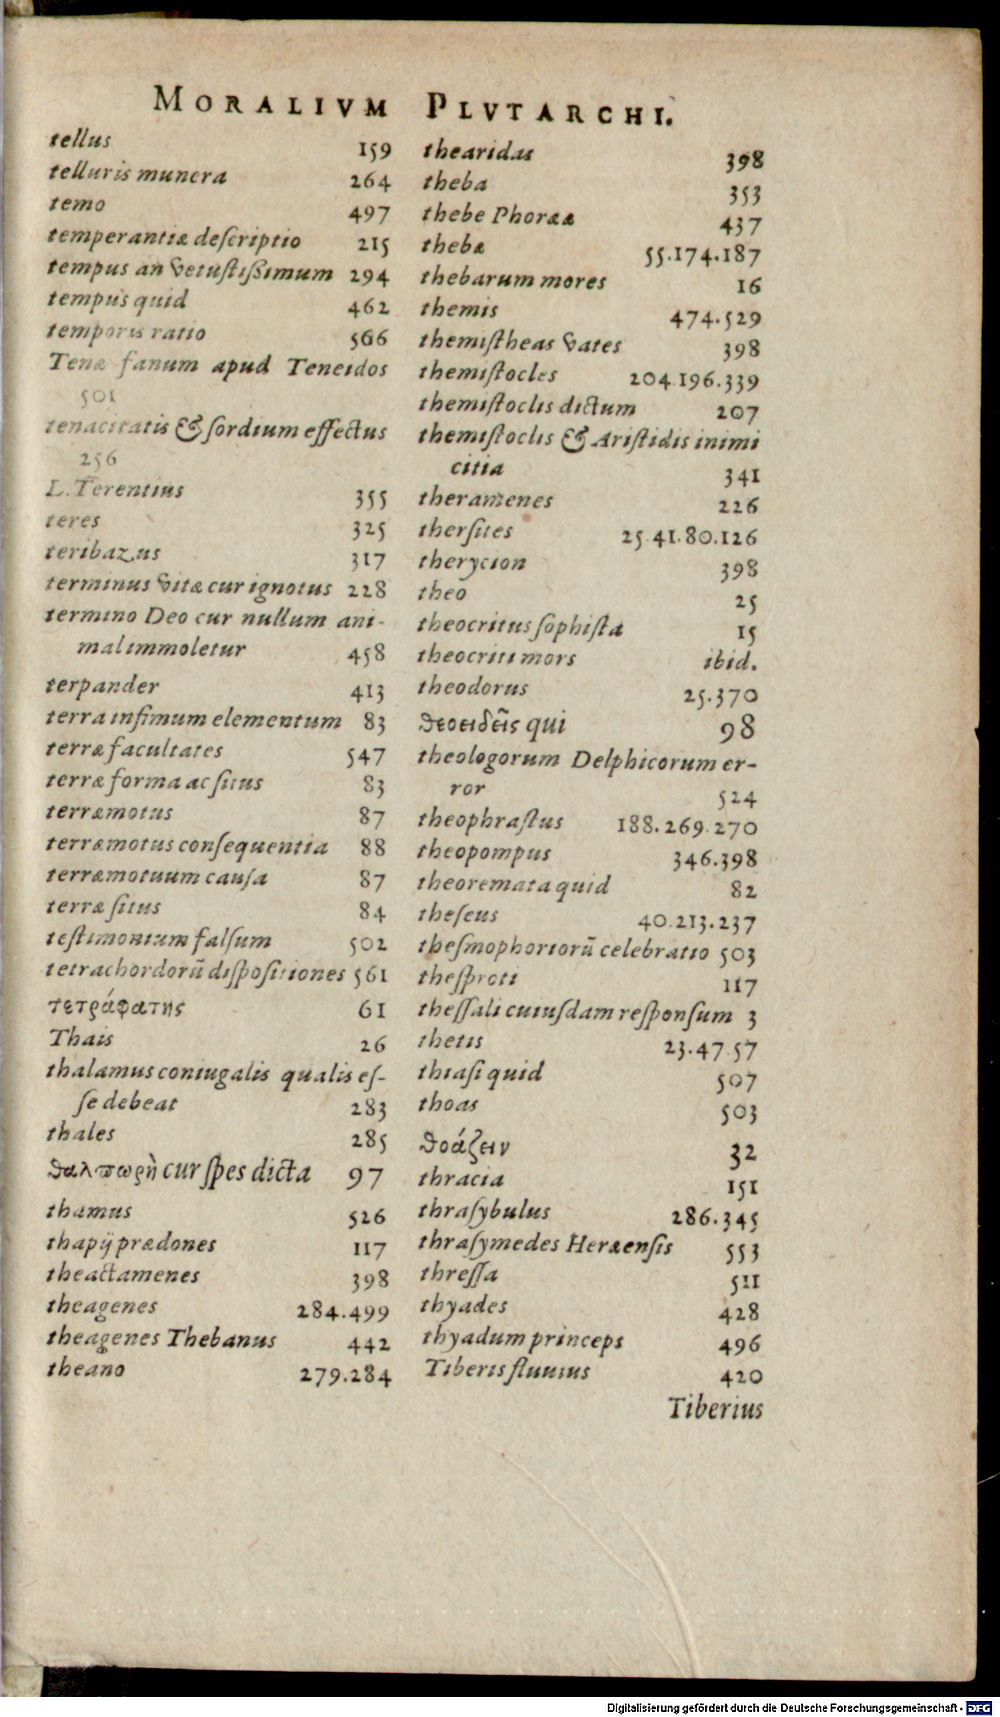 MORALIVM PLVTARCHI.
tellus 159
telluris munera 264
temo 497
temperantiæ deſcriptio 215
tempus an vetuſtiſsimum 294
tempus quid 462
temporis ratio 566
Tenæ fanum apud Teneidos
501
tenacitatis & ſordium effectus
256
L. Terentius 355
teres 325
teribazus 317
terminus vitæ cur ignotus 228
termino Deo cur nullum ani-
mal immoletur 458
terpander 413
terra infimum elementum 83
terræ facultates 547
terræ forma ac ſitus 83
terræmotus 87
terræmotus conſequentia 88
terræmotuum cauſa 87
terræ ſitus 84
teſtimonium falſum 502
tetrachordorũ diſpoſitiones 561
τετράφατης 61
Thais 26
thalamus coniugalis qualis eſ-
ſe debeat 283
thales 285
θαλπωρὴ cur ſpes dicta 97
thamus 526
thapij prædones 117
theactamenes 398
theagenes 284.499
theagenes Thebanus 442
theano 279.284
thearidas 398
theba 353
thebe Phoræa 437
thebæ 55.174.187
thebarum mores 16
themis 474.529
themiſtheas vates 398
themiſtocles 204.196.339
themiſtoclis dictum 207
themiſtoclis & Ariſtidis inimi
citia 341
theramenes 226
therſites 25.41.80.126
therycion 398
theo 25
theocritus ſophiſta 15
theocriti mors ibid.
theodorus 25.370
θεοειδεῖς qui 98
theologorum Delphicorum er-
ror 524
theophraſtus 188.269.270
theopompus 346.398
theoremata quid 82
theſeus 40.213.237
theſmophoriorũ celebratio 503
theſproti 117
theſſali cuiuſdam reſponſum 3
thetis 23.47.57
thiaſi quid 507
thoas 503
θοάζειν 32
thracia 151
thraſybulus 286.345
thraſymedes Heræenſis 553
threſſa 511
thyades 428
thyadum princeps 496
Tiberis fluuius 420
Tiberius
Digitalisierung gefördert durch die Deutsche Forschungsgemeinschaft - DFG